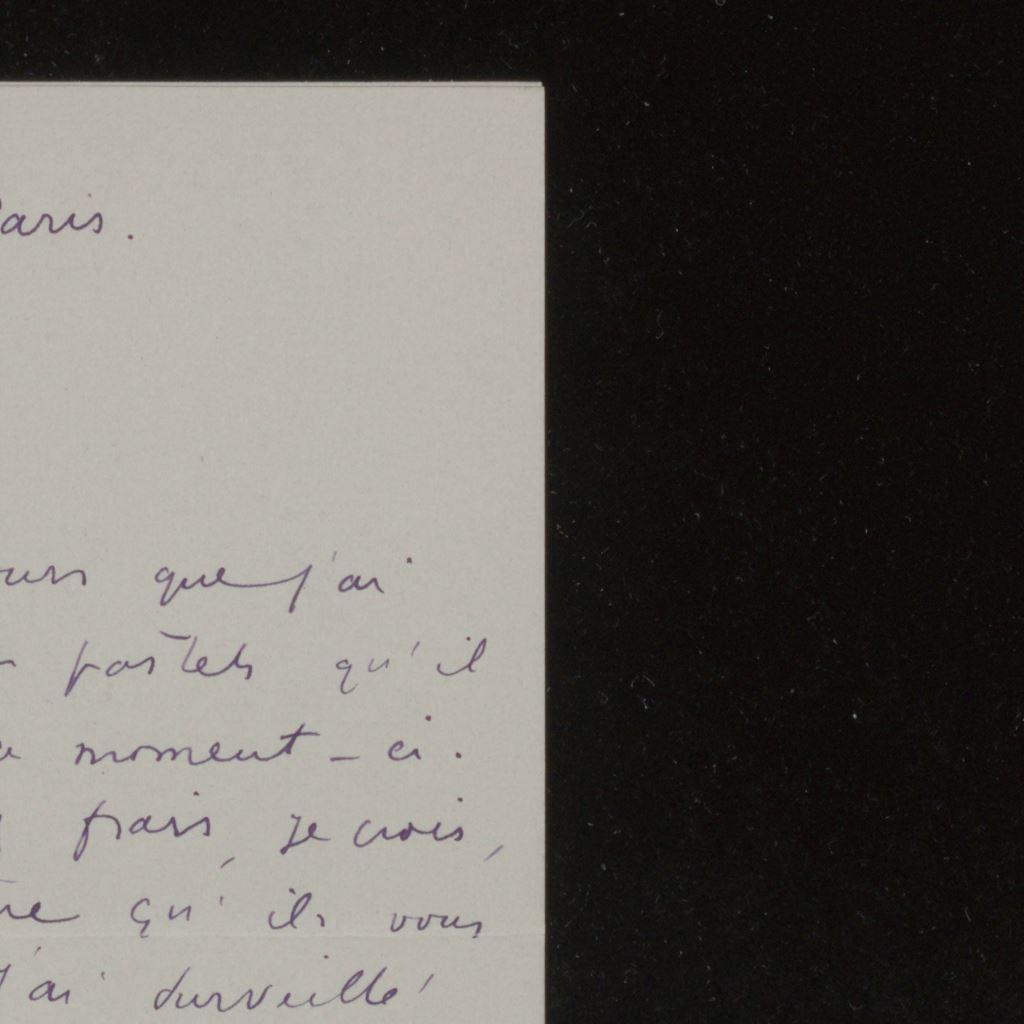 Paris.
que j'ai
pastels qu'il
moment-ci.
frais, je crois,
qu'ils vous
J'ai surveillé